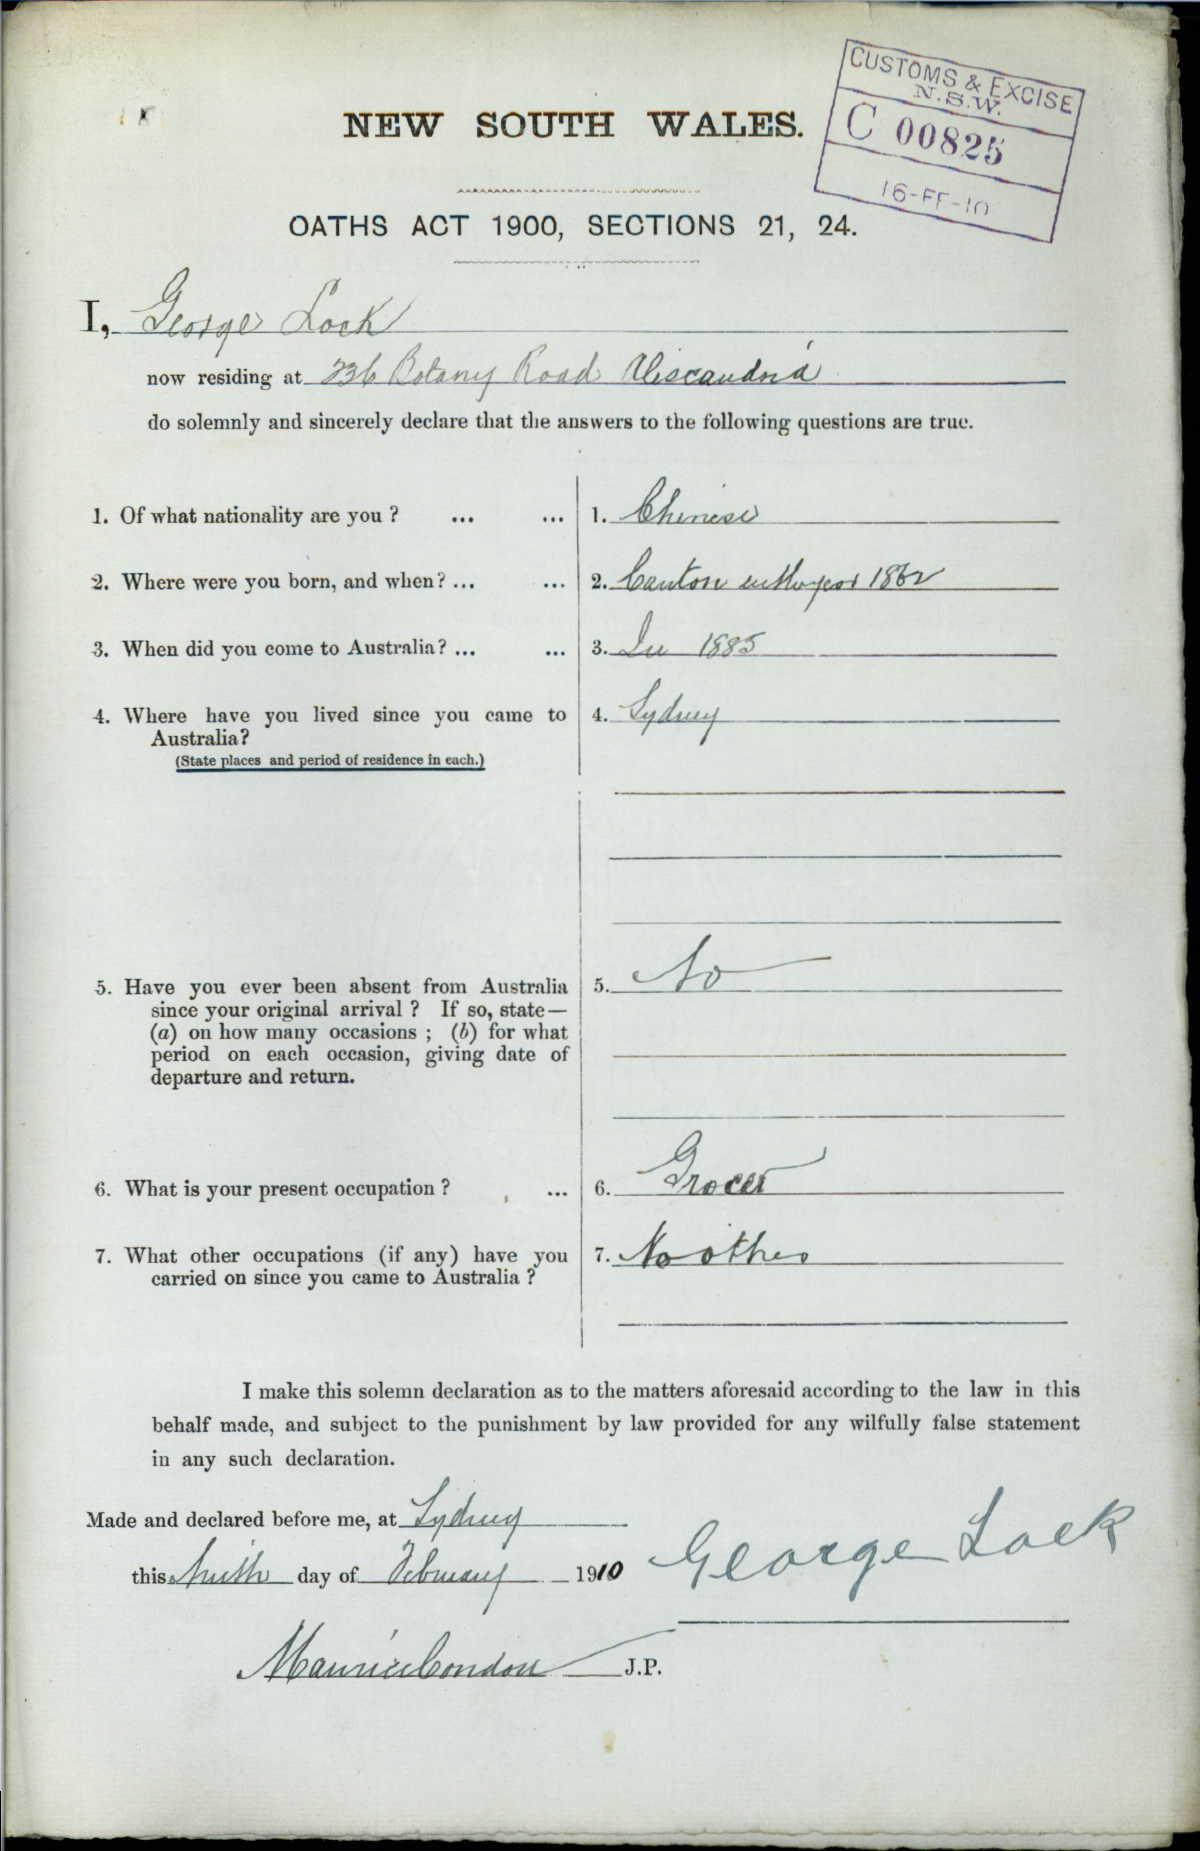 CUSTOMS & EXCISE
N.S.W.
C 00825
16-FE-10
NEW SOUTH WALES.
OATHS ACT 1900, SECTIONS 21, 24.
I, George Lock
now residing at 236 Botany Road Alexandria
do solemnly and sincerely declare that the answers to the following questions are true.
1. Of what nationality are you ? ... ... 1. Chinese
2. Where were you born, and when? ... ... 2. Canton in the year 1862
3. When did you come to Australia? ... ... 3. In 1885
4. Where have you lived since you came to 4. Sydney
Australia?
(State places and period of residence in each.)
5. Have you ever been absent from Australia 5. No
since your original arrival ? If so, state—
(a) on how many occasions ; (b) for what
period on each occasion, giving date of
departure and return.
6. What is your present occupation ? ... 6. Grocer
7. What other occupations (if any) have you 7. No other
carried on since you came to Australia ?
I make this solemn declaration as to the matters aforesaid according to the law in this
behalf made, and subject to the punishment by law provided for any wilfully false statement
in any such declaration.
Made and declared before me, at Sydney
this Ninth day of February 1910 George Lock
Maurice Condon J.P.